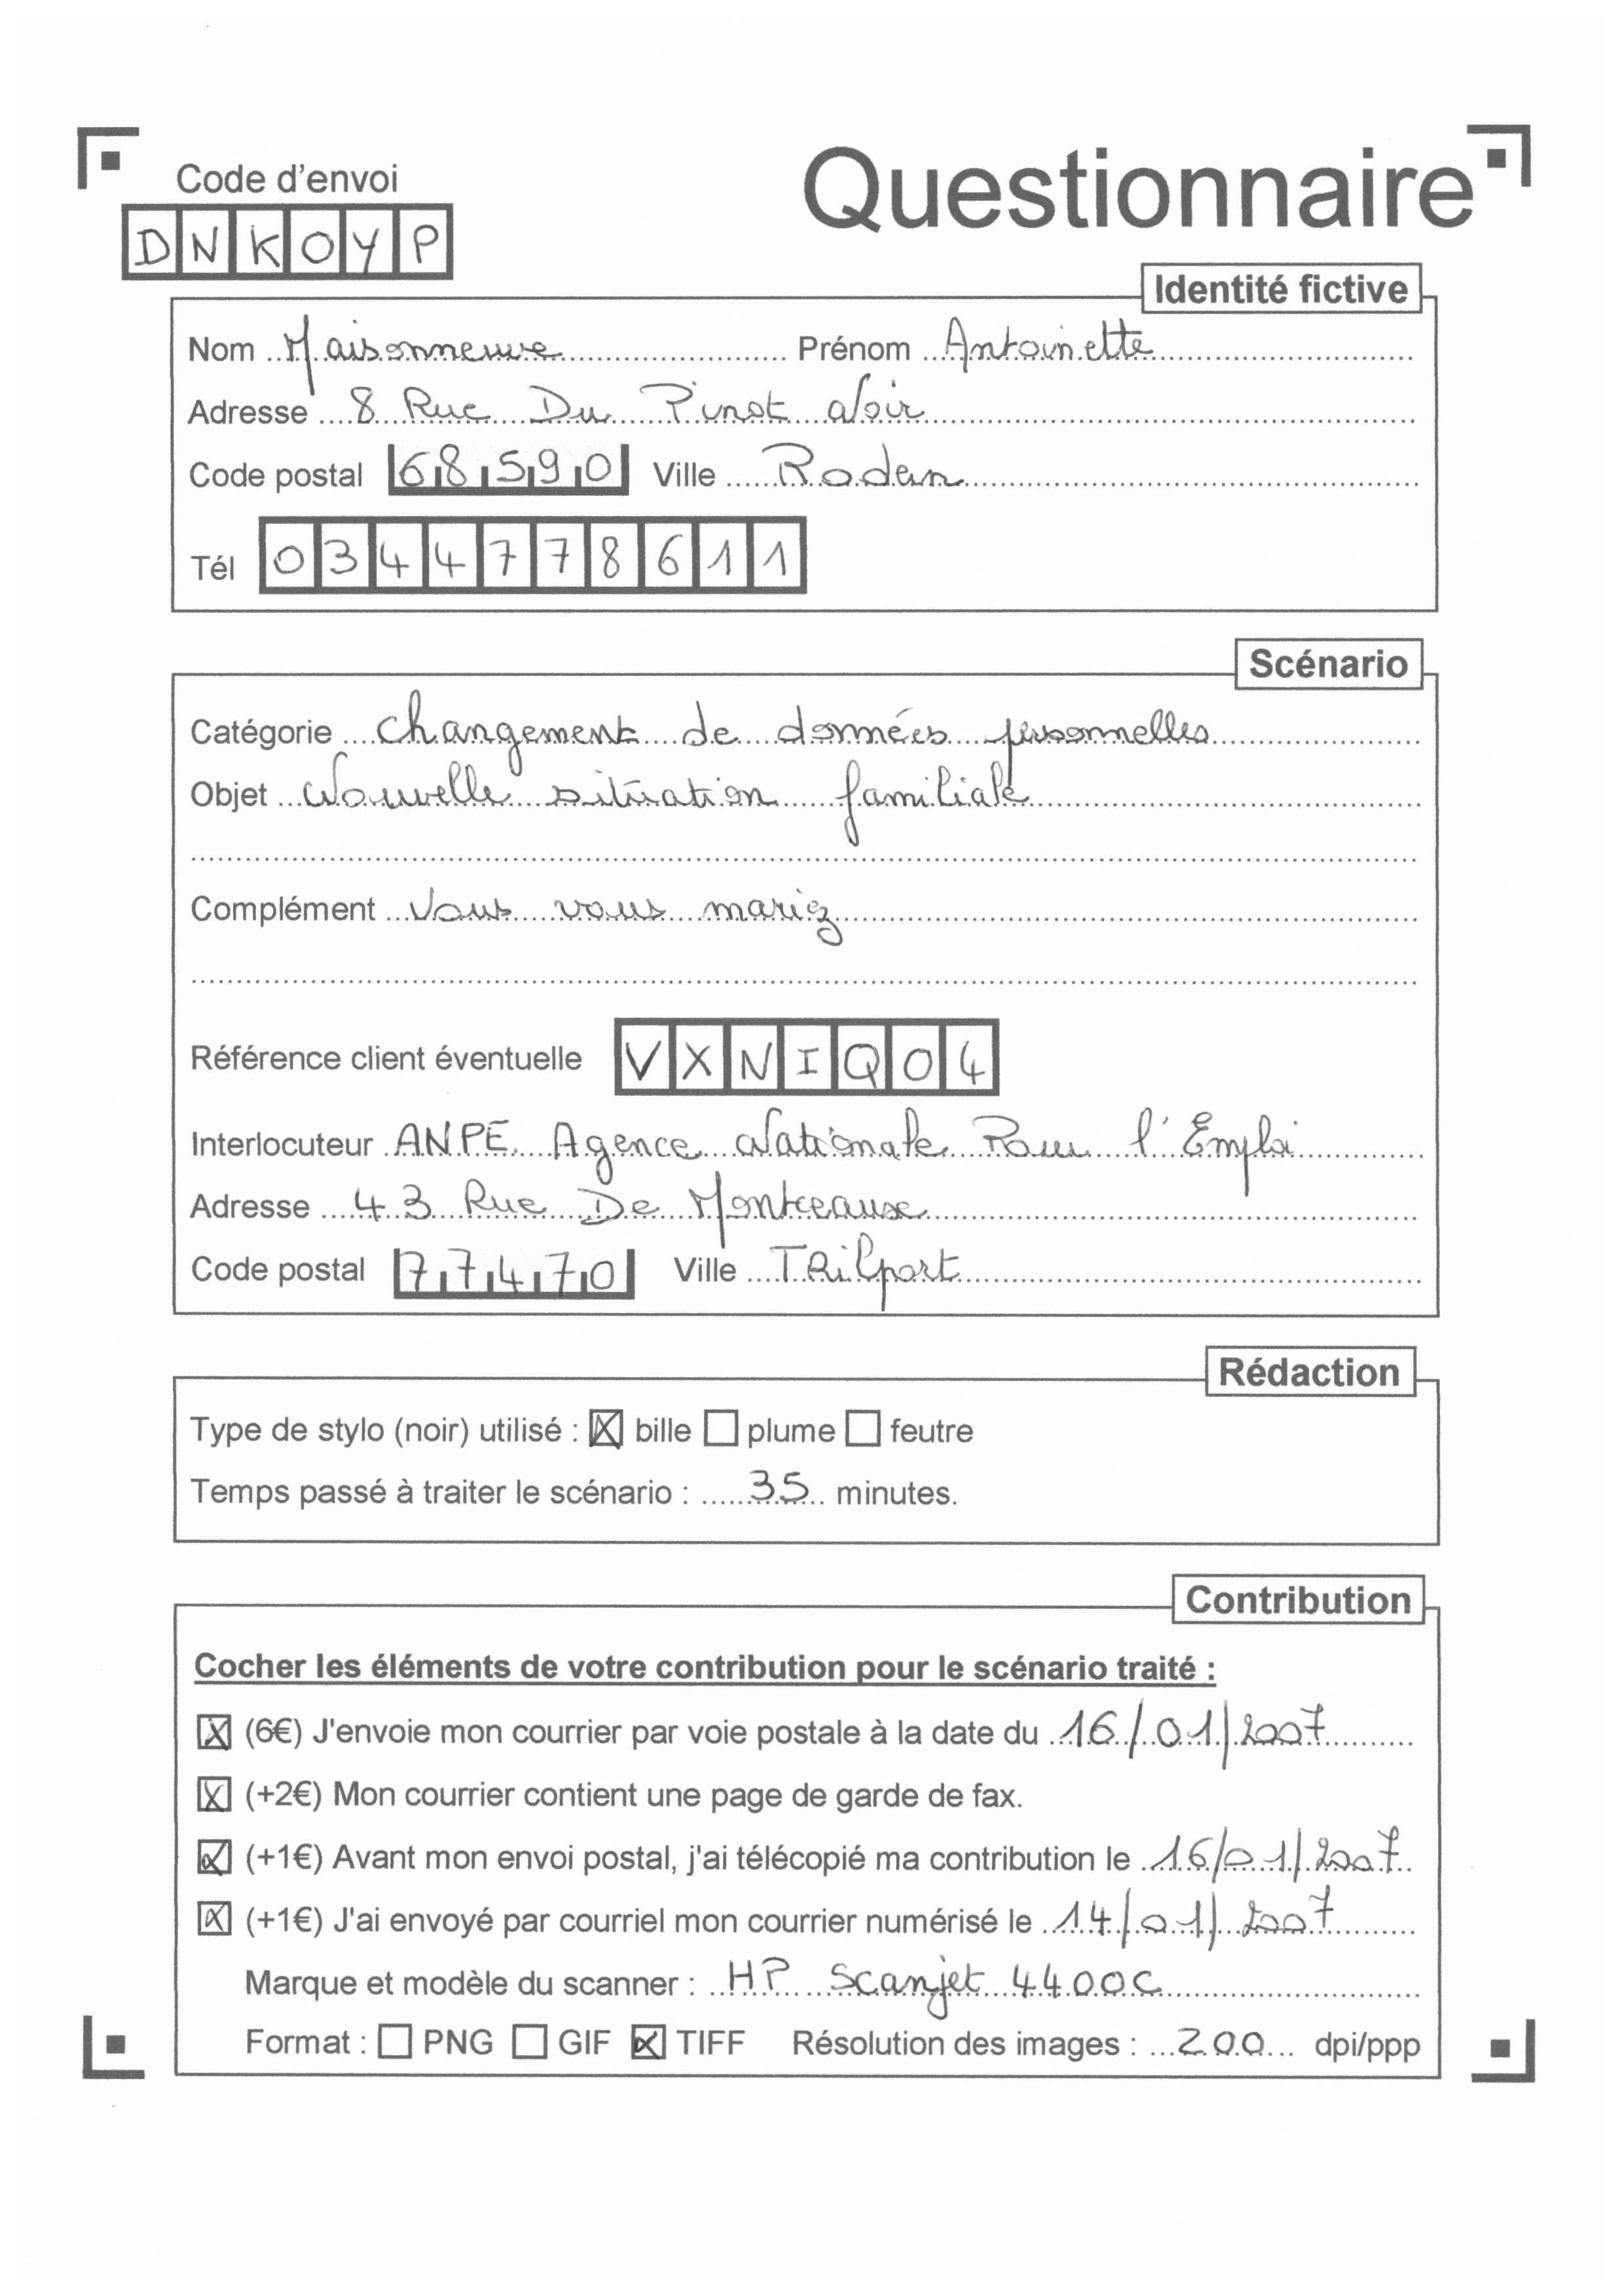 Code d'envoi
Questionnaire
DNKOYP
Identité fictive
Nom Maisonneuve Prénom Antoinette
Adresse 8 Rue Du Pinot Noir
Code postal 68590 Ville Rodern
Tél 0344778611
Scénario
Catégorie changement de données personnelles
Objet Nouvelle situation familiale
Complément Vous vous mariez
Référence client éventuelle VXNIQ04
Interlocuteur ANPE Agence Nationale Pour l'Emploi
Adresse 43 Rue De Montceaux
Code postal 77470 Ville TRilport
Rédaction
Type de stylo (noir) utilisé : ☒ bille ☐ plume ☐ feutre
Temps passé à traiter le scénario : 35 minutes.
Contribution
Cocher les éléments de votre contribution pour le scénario traité :
☒ (6€) J'envoie mon courrier par voie postale à la date du 16/01/2007
☒ (+2€) Mon courrier contient une page de garde de fax.
☒ (+1€) Avant mon envoi postal, j'ai télécopié ma contribution le 16/01/2007
☒ (+1€) J'ai envoyé par courriel mon courrier numérisé le 14/01/2007
Marque et modèle du scanner : HP Scanjet 4400C
Format : ☐ PNG ☐ GIF ☒ TIFF Résolution des images : 200 dpi/ppp